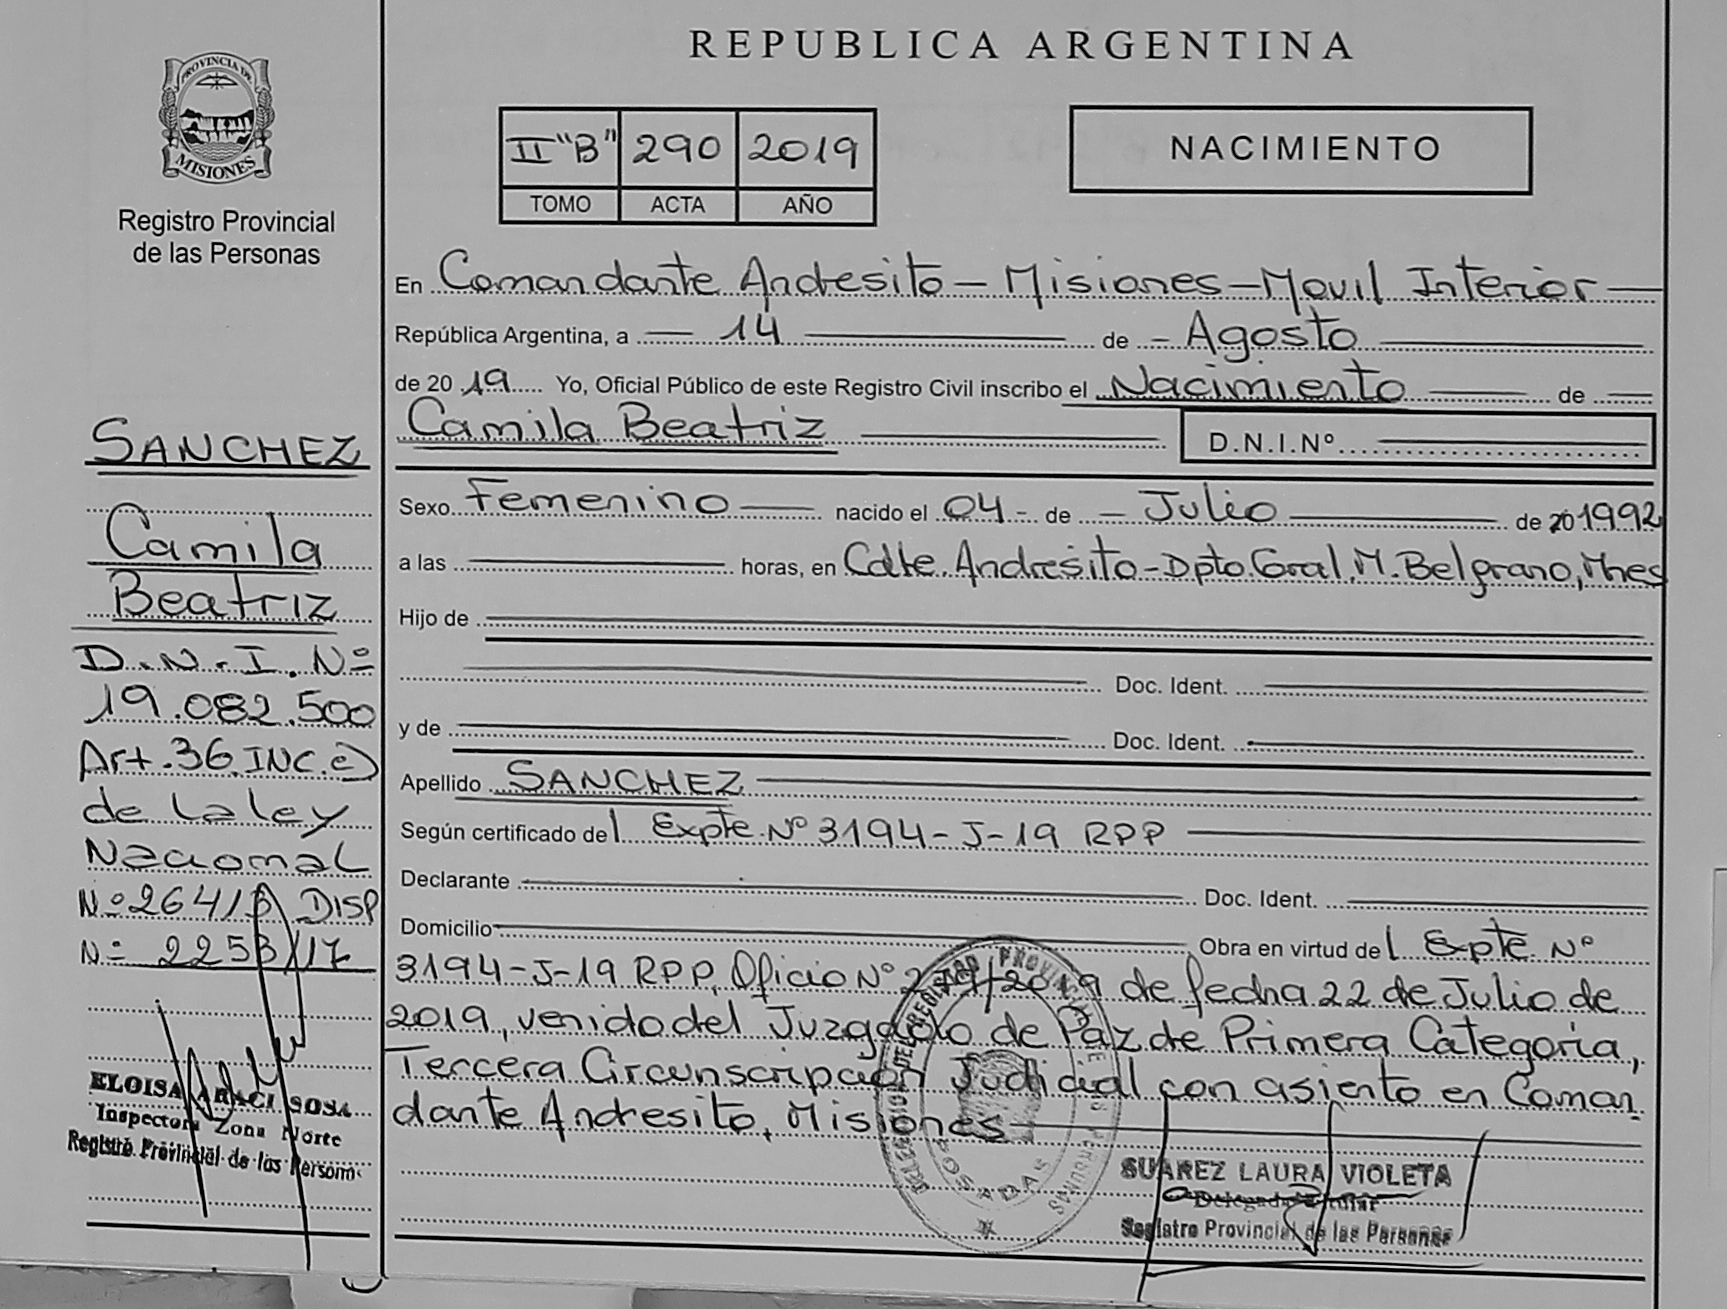 REPUBLICA ARGENTINA
PROVINCIA DE
MISIONES
Registro Provincial
de las Personas
II "B" 290 2019
TOMO ACTA AÑO
NACIMIENTO
En Comandante Andresito - Misiones - Movil Interior
República Argentina, a 14 de Agosto
de 2019 Yo, Oficial Público de este Registro Civil inscribo el Nacimiento de
Camila Beatriz D.N.I.Nº
Sexo Femenino nacido el 04 de Julio de 20 1992
a las horas, en Cdte. Andresito - Dpto. Gral. M. Belgrano, Mnes
Hijo de
Doc. Ident.
y de Doc. Ident.
Apellido SANCHEZ
Según certificado del Expte. Nº 3194-J-19 RPP
Declarante Doc. Ident.
Domicilio Obra en virtud del Expte Nº
3194-J-19 RPP, Oficio Nº /2019 de fecha 22 de Julio de
2019, venido del Juzgado de Paz de Primera Categoria,
Tercera Circunscripcion Judicial con asiento en Coman
dante Andresito, Misiones
SANCHEZ
Camila
Beatriz
D.N.I. Nº
19.082.500
Art. 36 INC. e)
de la ley
Nacional
Nº 26413 DISP
Nº 2253/17
ELOISA ARACI SOSA
Inspectora Zona Norte
Registro Provincial de las Person
SUAREZ LAURA VIOLETA
Delegada Titular
Registro Provincial de las Personas
POSADAS